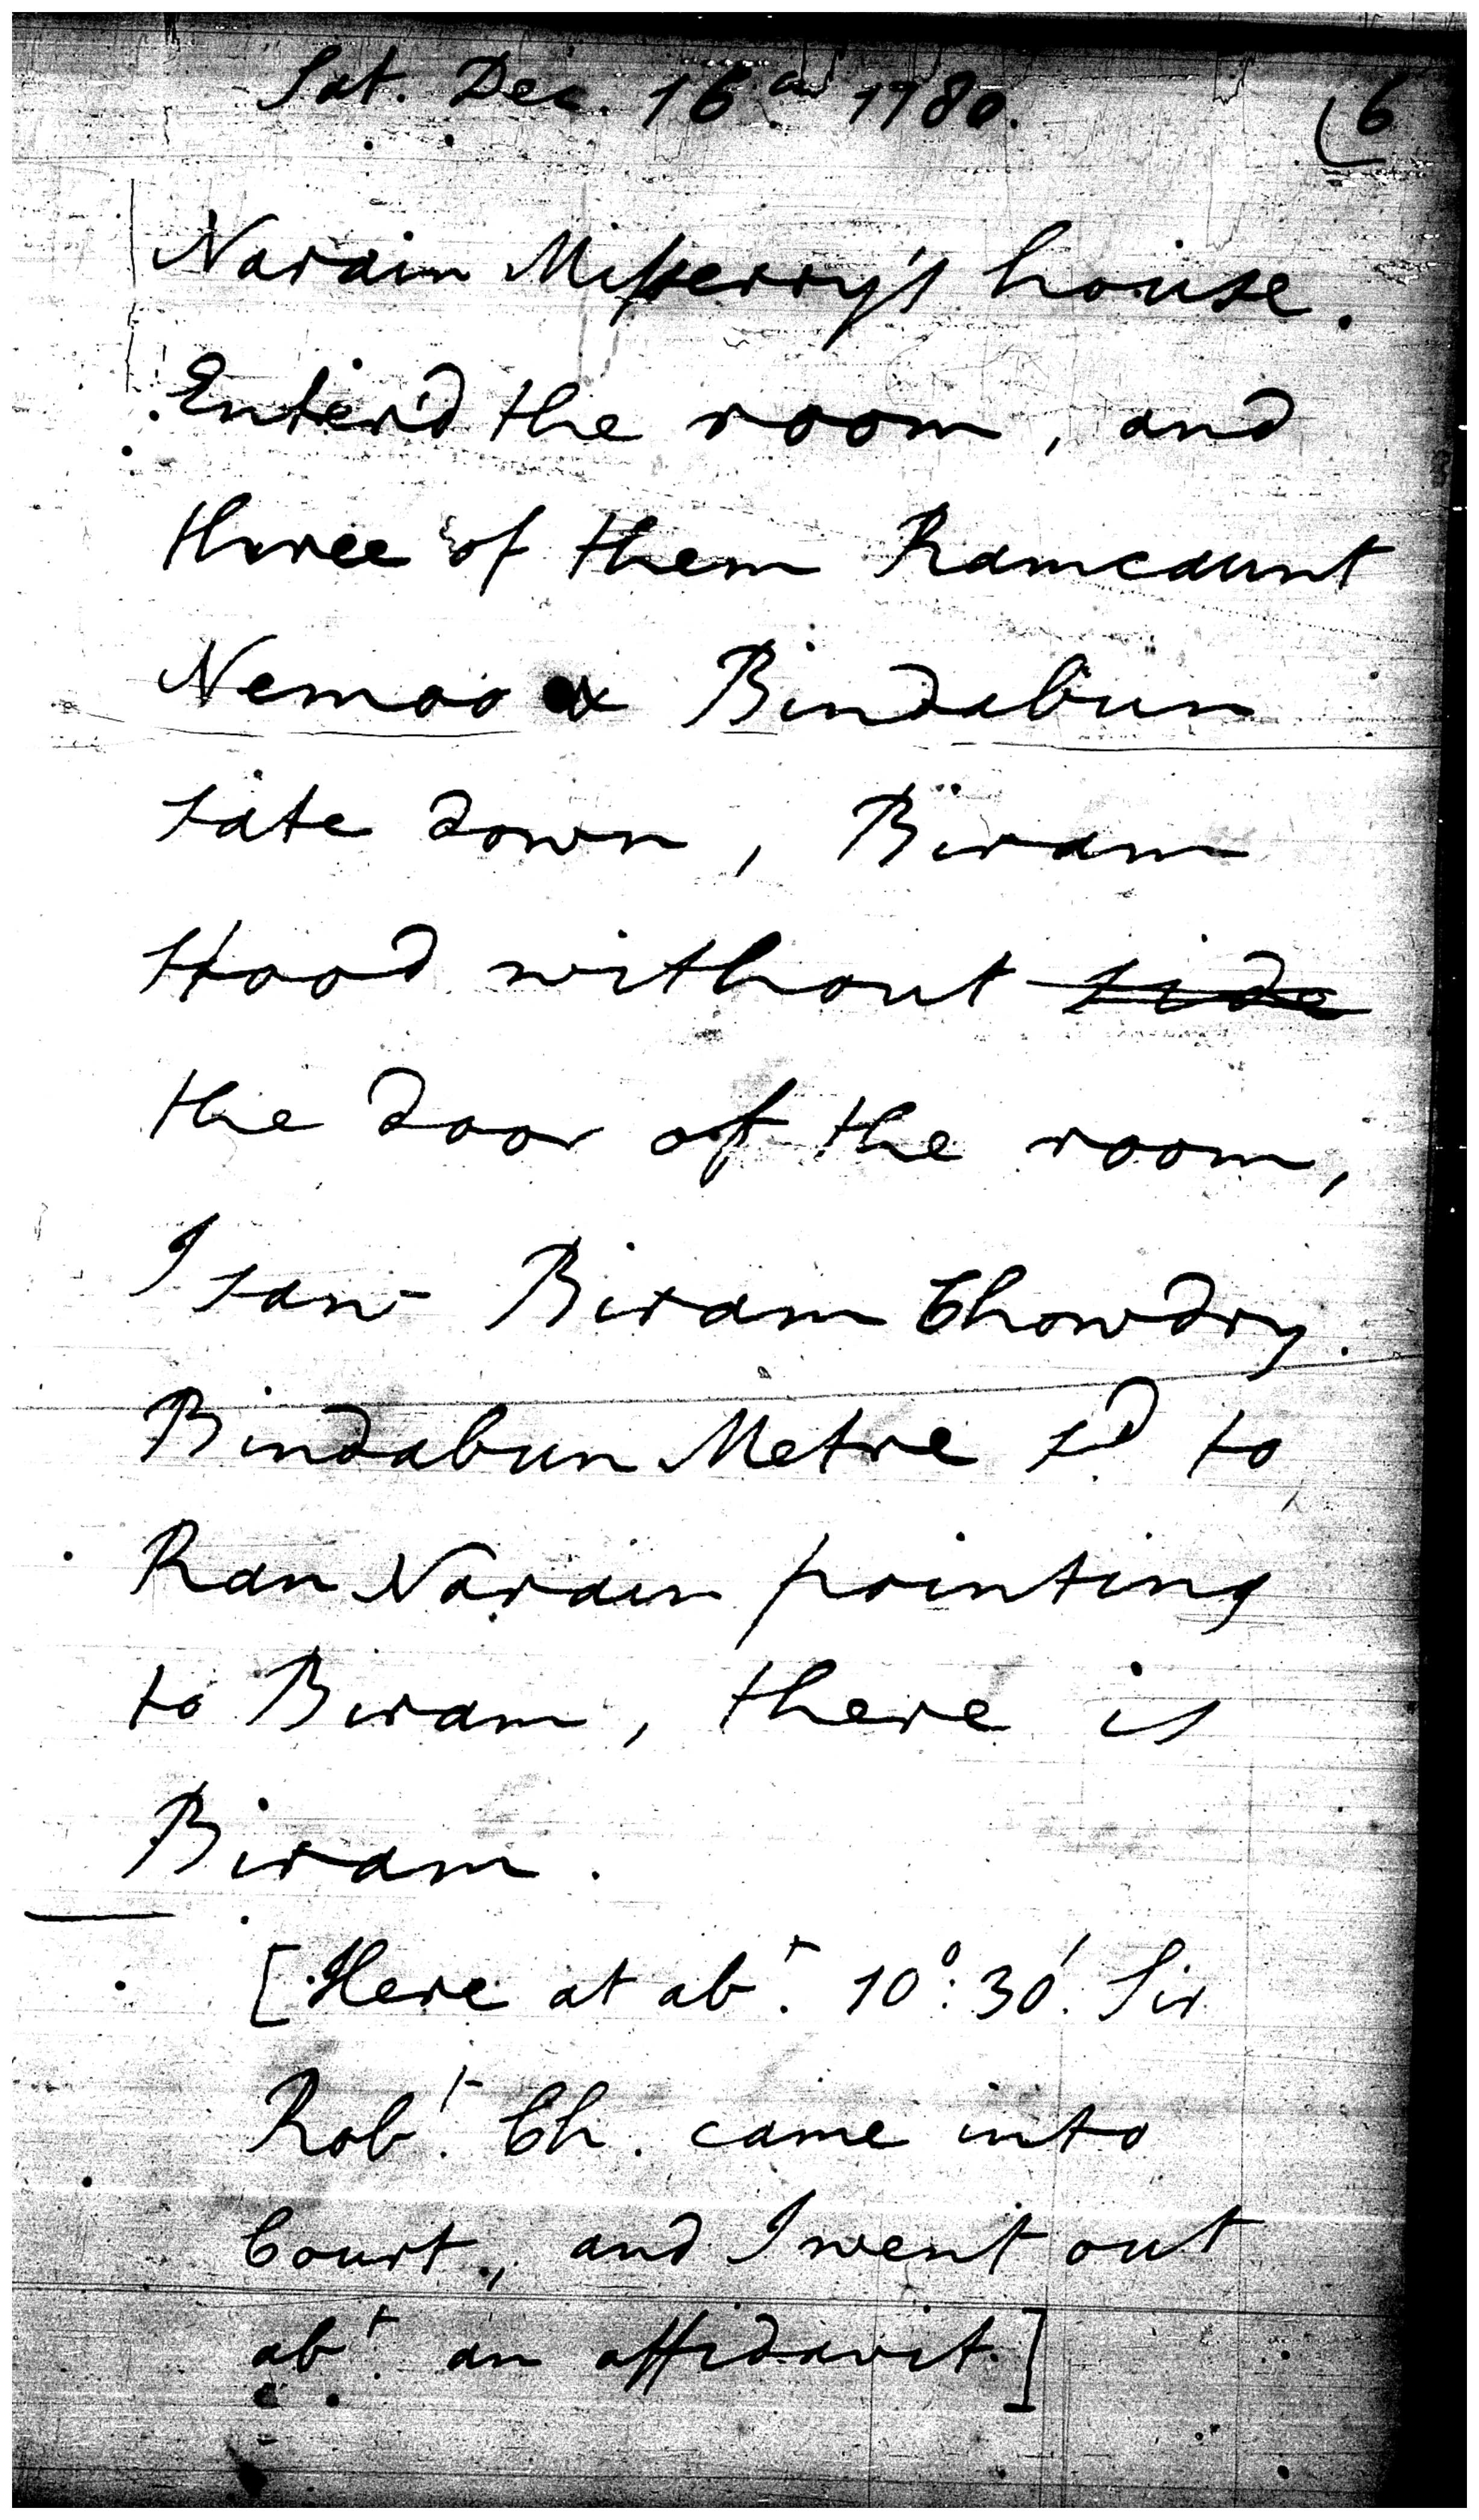 Sat. Dec. 16. 1780. 6
Narain Misserry's house.
Enter'd the room, and
three of them Ramcaunt
Nemoo & Bindabun
sate down, Biram
stood without side
the door of the room,
I saw Biram Chowdry.
Bindabun Metre sd. to
Ran Narain pointing
to Biram, there is
Biram.
[Here at abt. 10°: 30'. Sir
Robt. Ch. came into
Court, and I went out
abt. an affidavit.]